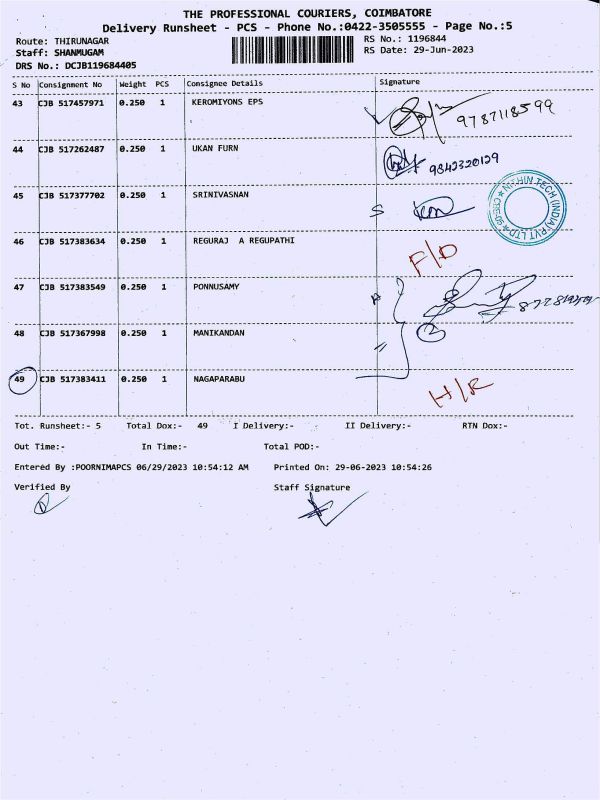 THE PROFESSIONAL COURIERS, COIMBATORE
Delivery Runsheet - PCS - Phone No.:0422-3505555 - Page No.:5
Route: THIRUNAGAR
RS No.: 1196844
Staff: SHANMUGAM
RS Date: 29-Jun-2023
DRS No.: DCJB119684405
S No Consignment No Weight PCS Consignee Details Signature
43 CJB 517457971 0.250 1 KEROMIYONS EPS 9787118599
44 CJB 517262487 0.250 1 UKAN FURN 9842320129
45 CJB 517377702 0.250 1 SRINIVASNAN S
NITHIN TECH (INDIA) PVT LTD
46 CJB 517383634 0.250 1 REGURAJ A REGUPATHI F/D
47 CJB 517383549 0.250 1 PONNUSAMY
2
48 CJB 517367998 0.250 1 MANIKANDAN "
49 CJB 517383411 0.250 1 NAGAPARABU H/R
Tot. Runsheet:- 5 Total Dox:- 49 I Delivery:- II Delivery:- RTN Dox:-
Out Time:- In Time:- Total POD:-
Entered By :POORNIMAPCS 06/29/2023 10:54:12 AM Printed On: 29-06-2023 10:54:26
Verified By Staff Signature